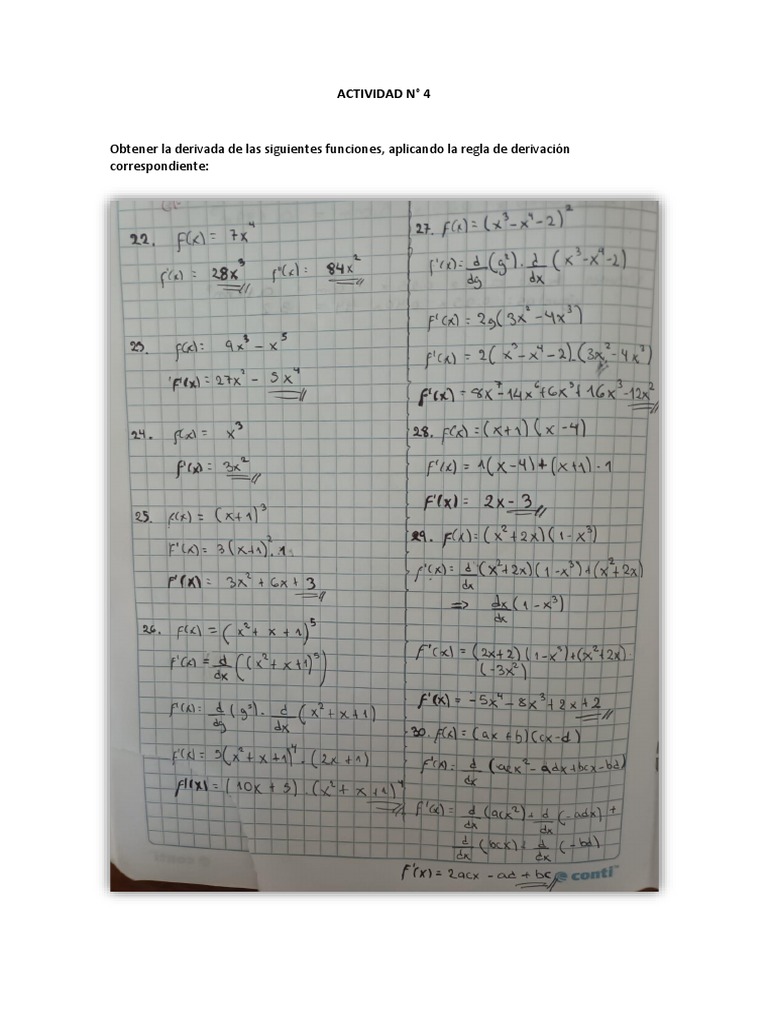 ACTIVIDAD N° 4
Obtener la derivada de las siguientes funciones, aplicando la regla de derivación
correspondiente:
22. f(x) = 7x⁴
f'(x) = 28x³ f''(x) = 84x²
23. f(x) = 9x³ - x⁵
f'(x) = 27x² - 5x⁴
24. f(x) = x³
f'(x) = 3x²
25. f(x) = (x+1)³
f'(x) = 3(x+1)².1
f'(x) = 3x² + 6x + 3
26. f(x) = (x² + x + 1)⁵
f'(x) = d/dx ((x² + x + 1)⁵)
f'(x) = d/dg (g⁵) . d/dx (x² + x + 1)
f'(x) = 5(x² + x + 1)⁴ . (2x + 1)
f'(x) = (10x + 5) . (x² + x + 1)⁴
27. f(x) = (x³ - x⁴ - 2)²
f'(x) = d/dg (g²) . d/dx (x³ - x⁴ - 2)
f'(x) = 2g(3x² - 4x³)
f'(x) = 2(x³ - x⁴ - 2).(3x² - 4x³)
f'(x) = 8x⁷ - 14x⁶ + 6x⁵ + 16x³ - 12x²
28. f(x) = (x+1)(x-4)
f'(x) = 1(x-4) + (x+1) . 1
f'(x) = 2x - 3
29. f(x) = (x² + 2x)(1 - x³)
f'(x) = d/dx (x² + 2x)(1 - x³) + (x² + 2x)
=> dx/dx (1 - x³)
f'(x) = (2x+2)(1 - x³) + (x² + 2x) .
(-3x²)
f'(x) = -5x⁴ - 8x³ + 2x + 2
30. f(x) = (ax + b)(cx - d)
f'(x) = d/dx (acx² - adx + bcx - bd)
f'(x) = d/dx (acx²) + d/dx (-adx) +
d/dx (bcx) + d/dx (-bd)
f'(x) = 2acx - ad + bc
conti™